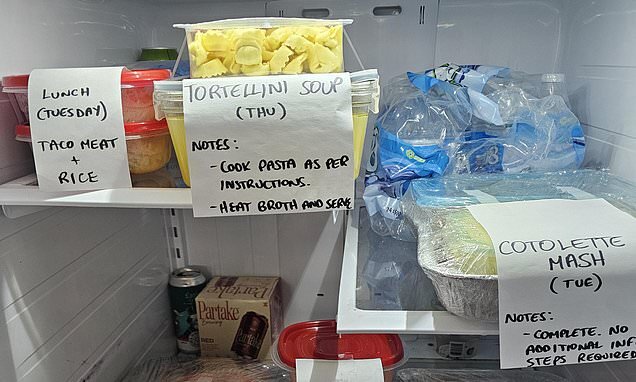 LUNCH
(TUESDAY)
TACO MEAT
+
RICE
TORTELLINI SOUP
(THU)
NOTES:
- COOK PASTA AS PER
INSTRUCTIONS.
- HEAT BROTH AND SERVE
COTOLETTE
MASH
(TUE)
NOTES:
- COMPLETE. NO
ADDITIONAL INF
STEPS REQUIRED
Partake
Brewing
RED
Partake